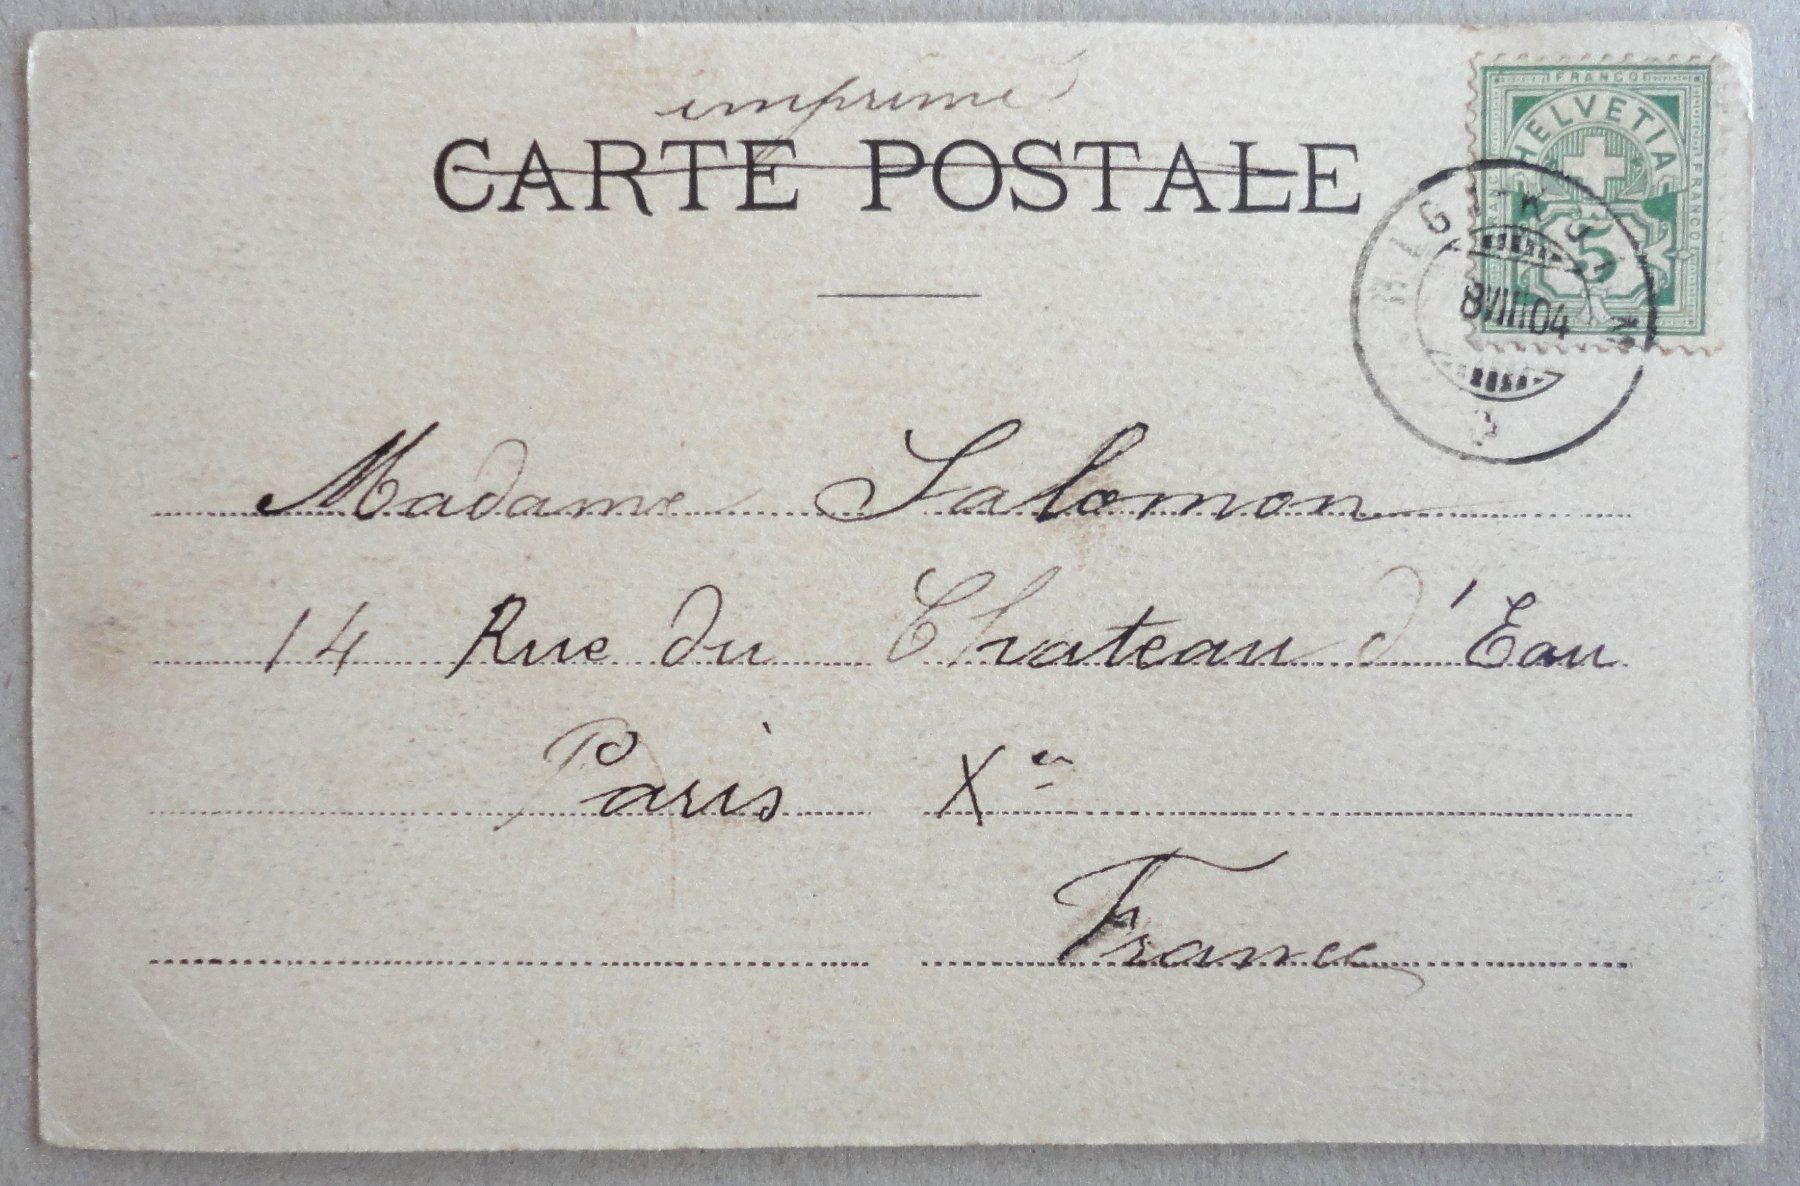 imprimé
CARTE POSTALE
FRANCO
HELVETIA
FRANCO
5
RIGI-KULM
8 VIII 04
Madame Salomon
14 Rue du Chateau d'Eau
Paris Xe
France